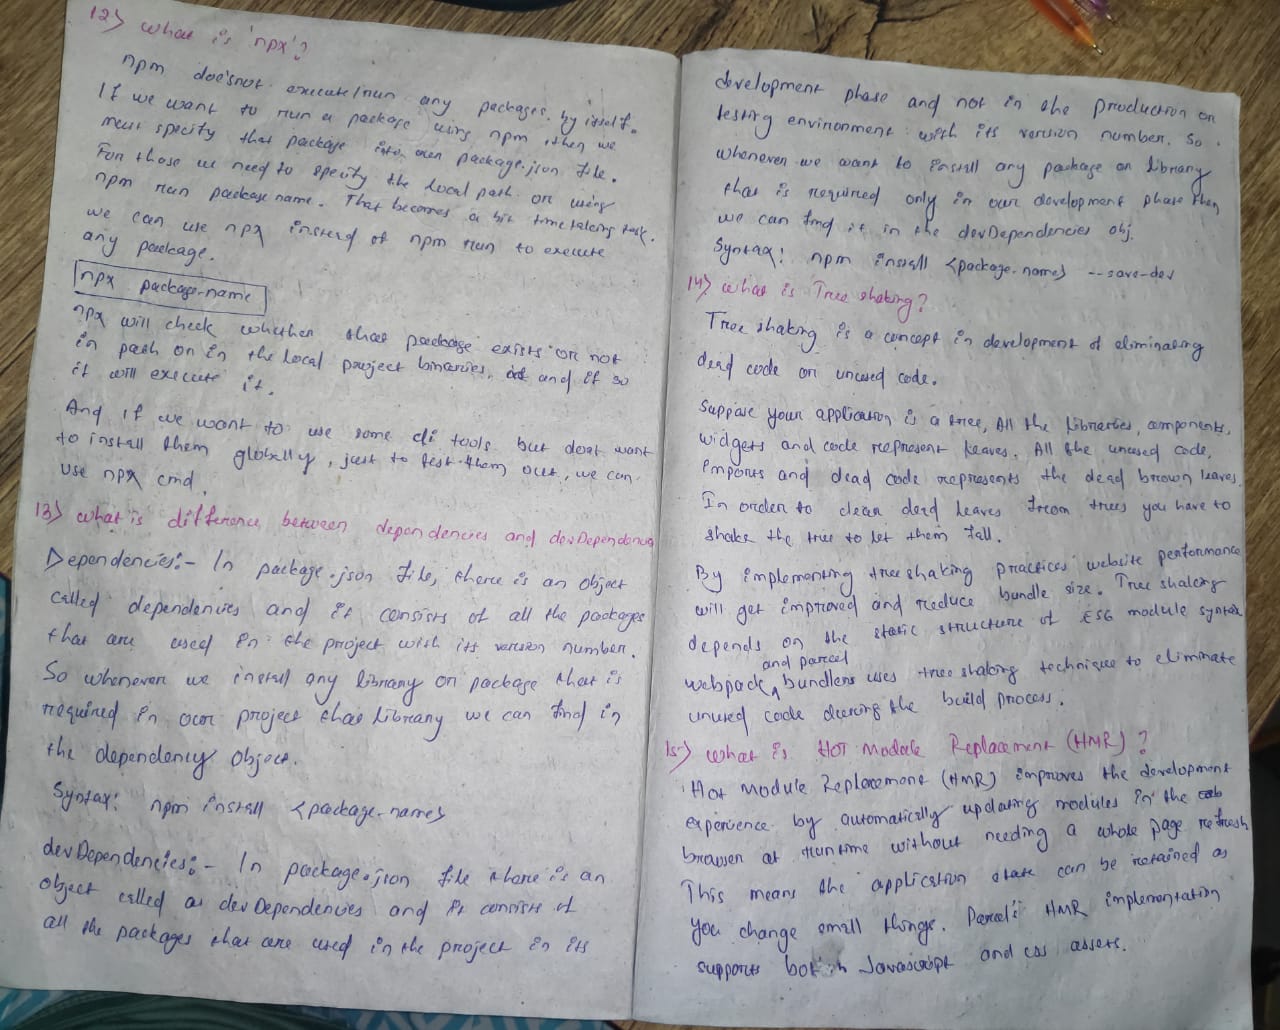 12) What is 'npx'?
npm doe'snot execute/run any packages by itself.
If we want to run a package using npm, then we
must specify that package into our package.json file.
For those we need to specify the local path or using
npm run package name. That becomes a bit time taking task.
we can use npx instead of npm run to execute
any package.
npx package-name
npx will check whether that package exists or not
in path or in the local project binaries, and if so
it will execute it.
And if we want to use some cli tools but dont want
to install them globally, just to test them out, we can
use npx cmd.
13) what is difference between dependencies and devDependencies
Dependencies:- In package.json file, there is an object
called dependencies and it consists of all the packages
that are used in the project with its version number.
So whenever we install any library or package that is
required in our project that library we can find in
the dependency object.
Syntax: npm install <package-name>
devDependencies:- In package.json file there is an
object called as devDependencies and it consists of
all the packages that are used in the project in its
development phase and not in the production or
testing environment with its version number. So
whenever we want to install any package or library
that is required only in our development phase then
we can find it in the devDependencies obj.
Syntax: npm install <package-name> --save-dev
14) what is Tree shaking?
Tree shaking is a concept in development of eliminating
dead code or unused code.
Suppose your application is a tree, All the libraries, components,
widgets and code represent leaves. All the unused code,
imports and dead code represents the dead brown leaves.
In order to clean dead leaves from trees you have to
shake the tree to let them fall.
By implementing tree shaking practices website performance
will get improved and reduce bundle size. Tree shaking
depends on the static structure of ES6 module syntax
webpack and parcel bundlers uses tree shaking technique to eliminate
unused code during the build process.
15) What is Hot Module Replacement (HMR)?
Hot Module Replacement (HMR) improves the development
experience by automatically updating modules in the
browser at runtime without needing a whole page refresh
This means the application state can be retained as
you change small things. Parcel's HMR implementation
supports both Javascript and css assets.